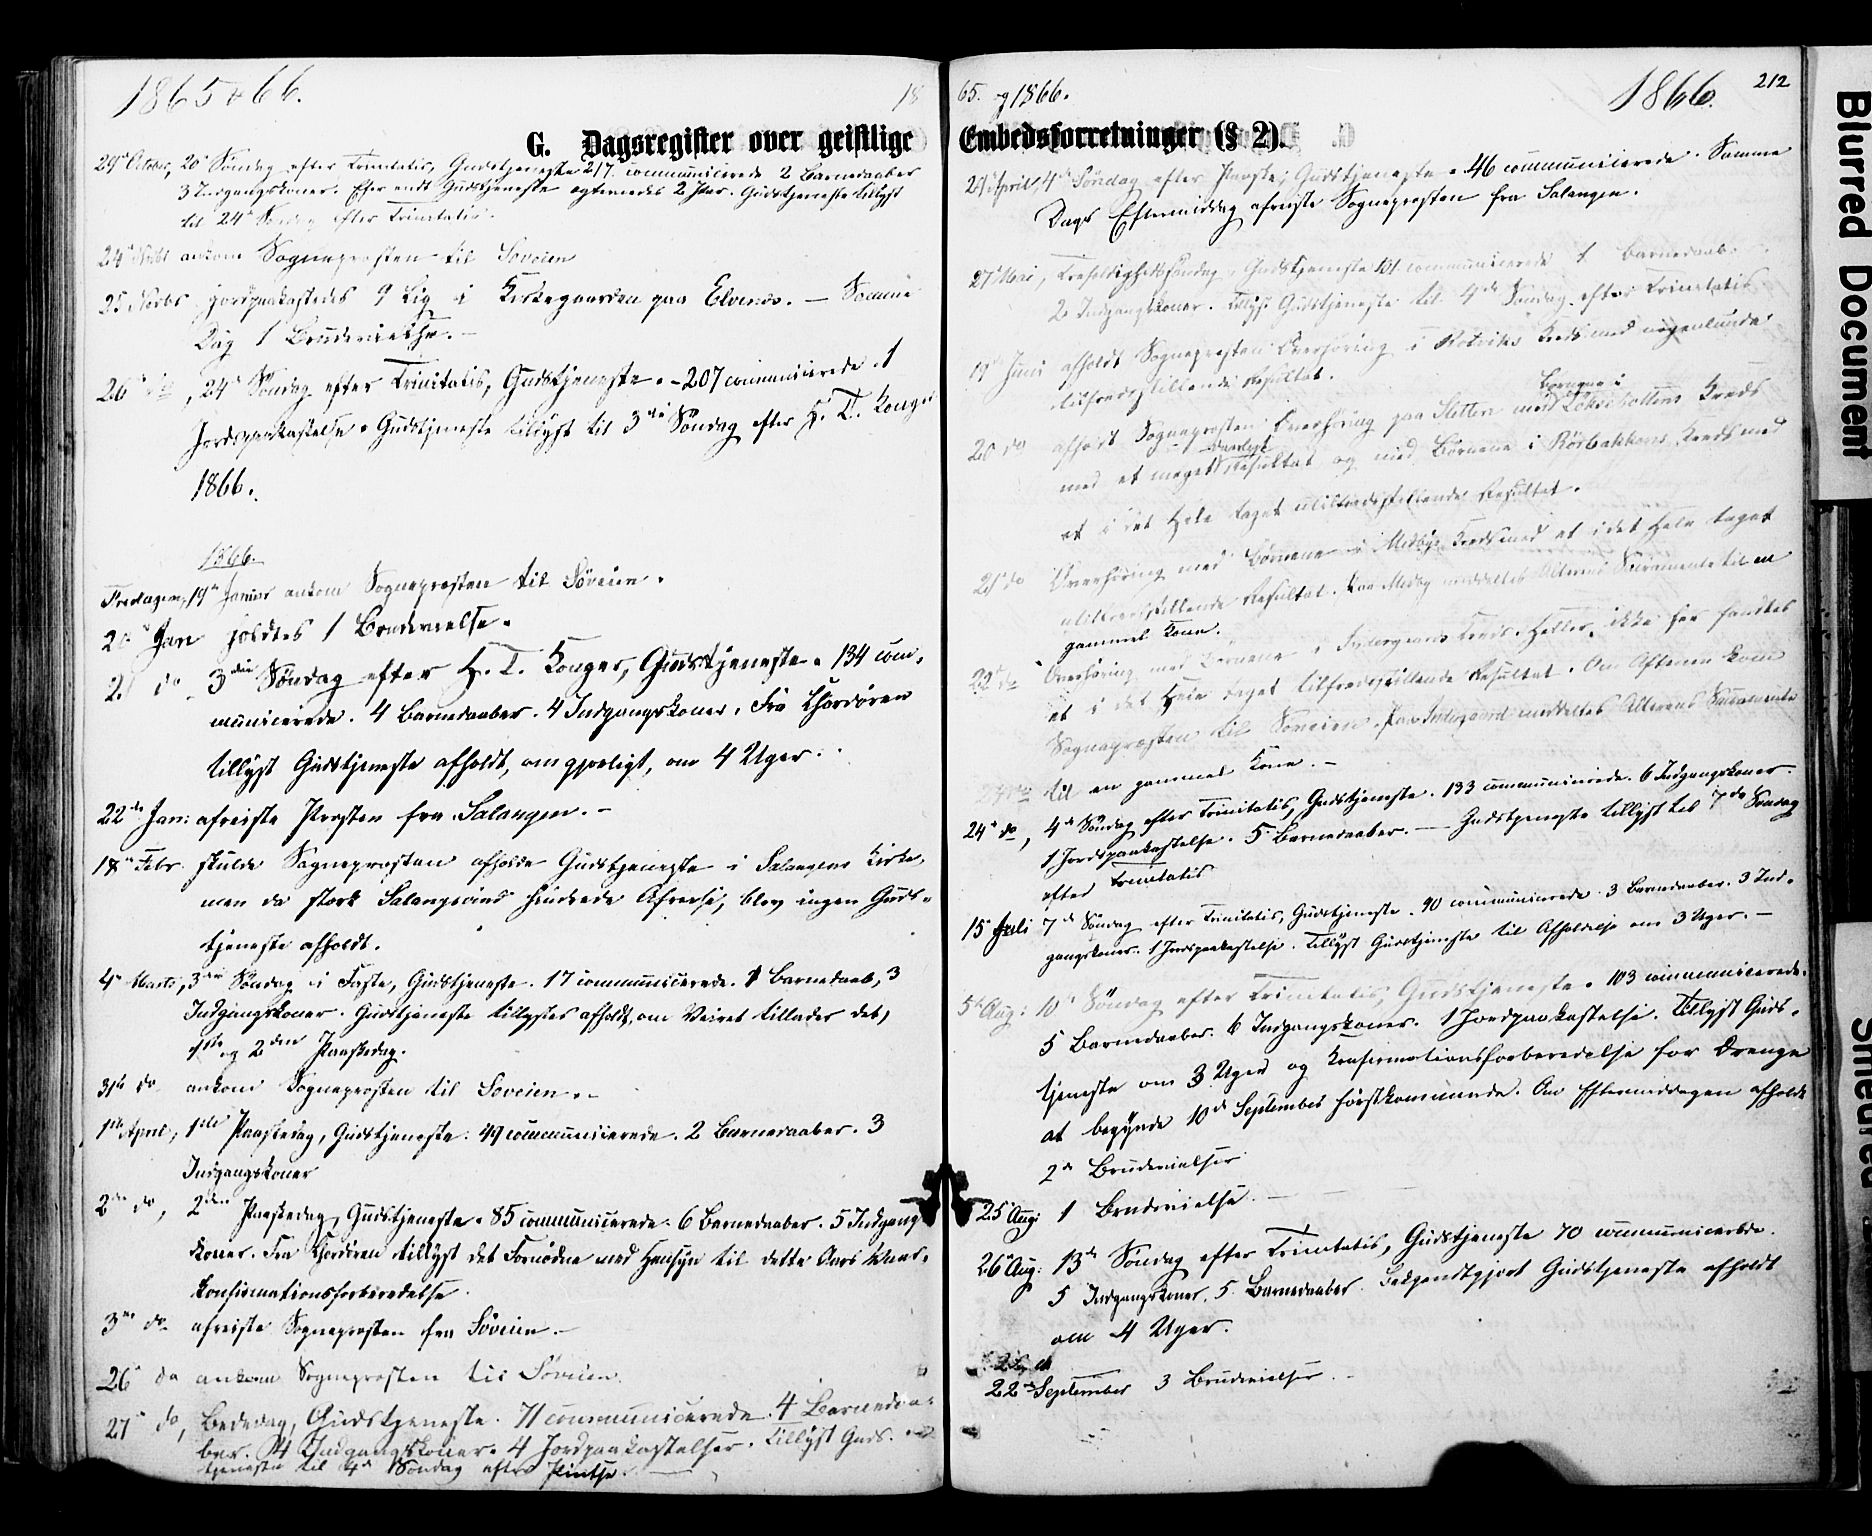 1865 & 66.
18
G. Dagsregister over geistlige
29de October, 20de Søndag efter Trinitatis, Gudstjeneste 217 communicerede 2 Barnedaaber
3 Indgangskoner. Efter endt Gudstjeneste egteviedes 2 Par. Gudstjeneste tillyst
til 24de Søndag efter Trinitatis.
24de Novbr ankom Sogneprosten til Søveien
25 Novbr jordpaakastedes 9 Lig i Kirkegaarden paa Elvenes. – Samme
Dag 1 Brudevielse. –
26de do, 24de Søndag efter Trinitatis, Gudstjeneste. – 207 communicerede. 1
Jordpaakastelse. Gudstjeneste tillyst til 3die Søndag efter H. T. Konger
1866.
1866.
Fredagen, 19de Januar ankom Sogneprosten til Søveien.
20de Jan holdtes 1 Brudevielse.
21 do 3die Søndag efter H. T. Konger, Gudstjeneste. 134 com,
municerede. 4 Barnedaaber. 4 Indgangskoner. Fra Chordøren
tillyst Gudstjeneste afholdt, om gjørligt, om 4 Uger.
22de Jan: afreiste Prosten fra Salangen. –
18de Febr. skulde Sogneprosten afholde Gudstjeneste i Salangens Kirke,
men da stærk Salangsvind hindrede Afreise, blev ingen Guds-
tjeneste afholdt.
4de Marts, 3die Søndag i Faste, Gudstjeneste. 17 communicerede. 1 Barnedaab, 3
Indgangskoner. Gudstjeneste tillystes afholdt, om Veiret tillader det,
1ste og 2den Paaskedag.
31te do ankom Sogneprosten til Søveien. –
1ste April, 1ste Paaskedag, Gudstjeneste. 49 communicerede. 2 Barnedaaber. 3
Indgangskoner
2den do, 2den Paaskedag, Gudstjeneste. 85 communicerede. 6 Barnedaaber. 5 Indgangs
koner. Fra Chordøren tillyst det Fornødne med Hensyn til dette Aars
Konfirmationsforberedelse.
3die do afreiste Sogneprosten fra Søveien. –
26de do ankom Sogneprosten til Søveien.
27de do, Bededag, Gudstjeneste. 71 communicerede. 4 Barnedaa-
ber. 4 Indgangskoner. 4 Jordpaakastelser. Tillyst Guds-
tjeneste til 4de Søndag efter Pintse. –
65. og 1866.
1866.
212
Embedsforretninger (§ 2).
29de April, 4de Søndag efter Paaske, Gudstjeneste. 46 communicerede. Samme
Dags Eftermiddag afreiste Sogneprosten fra Salangen.
27de Mai, Trefoldighedssøndag, Gudstjeneste 101 communicerede 1 Barnedaab.
2 Indgangskoner. Tillyst Gudstjeneste til 4de Søndag efter Trinitatis
19de Juni afholdt Sogneprosten Overhøring i Rotviks Kreds med nogenlunde
tilfredsstillende Resultat.
20 do afholdt Sogneprosten Overhøring paa Sletten med Børnene i Kreds
med et meget daarligt Resultat og med Børnene i Rørbakkens Kreds med
et i det Hele taget utilfredsstillende Resultat.
21de do Overhøring med Børnene i Medbye Kreds med et i det Hele taget
utilfredsstillende Resultat. Paa Medby meddeltes Alterens Sacramente til en
gammel Kone.
22de do Overhøring med Børnene i Kreds. Heller ikke her fandtes
et i det Hele taget tilfredsstillende Resultat. Om Aftenen kom
Sogneprosten til Søveien. Paa meddeltes Alterens Sacramente
til en gammel Kone. –
24de do, 4de Søndag efter Trinitatis, Gudstjeneste. 133 communicerede. 6 Indgangskoner.
1 Jordspaakastelse. 5 Barnedaaber. – Gudstjeneste tillyst til 7de Søndag
efter Trinitatis
15de Juli 7de Søndag efter Trinitatis, Gudstjeneste. 90 communicerede. 3 Barnedaaber. 3 Ind-
gangskoner. 1 Jordspaakastelse. Tillyst Gudstjeneste til Afholdelse om 3 Uger. –
5te Aug: 10de Søndag efter Trinitatis, Gudstjeneste. 103 communicerede.
5 Barnedaaber. 6 Indgangskoner. 1 Jordpaakastelse. Tillyst Guds-
tjeneste om 3 Uger og Konfirmationsforberedelse for Drenge
at begynde 10de September førstkommende. Om Eftermiddagen afholdt
2de Brudevielser
25de Aug: 1 Brudevielse. –
26de Aug: 13de Søndag efter Trinitatis, Gudstjeneste 70 communicerede.
5 Indgangskoner. 5 Barnedaaber. Bekjendtgjort Gudstjeneste afholdt
om 4 Uger.
22de September 3 Brudevielser. –
Blurred Document